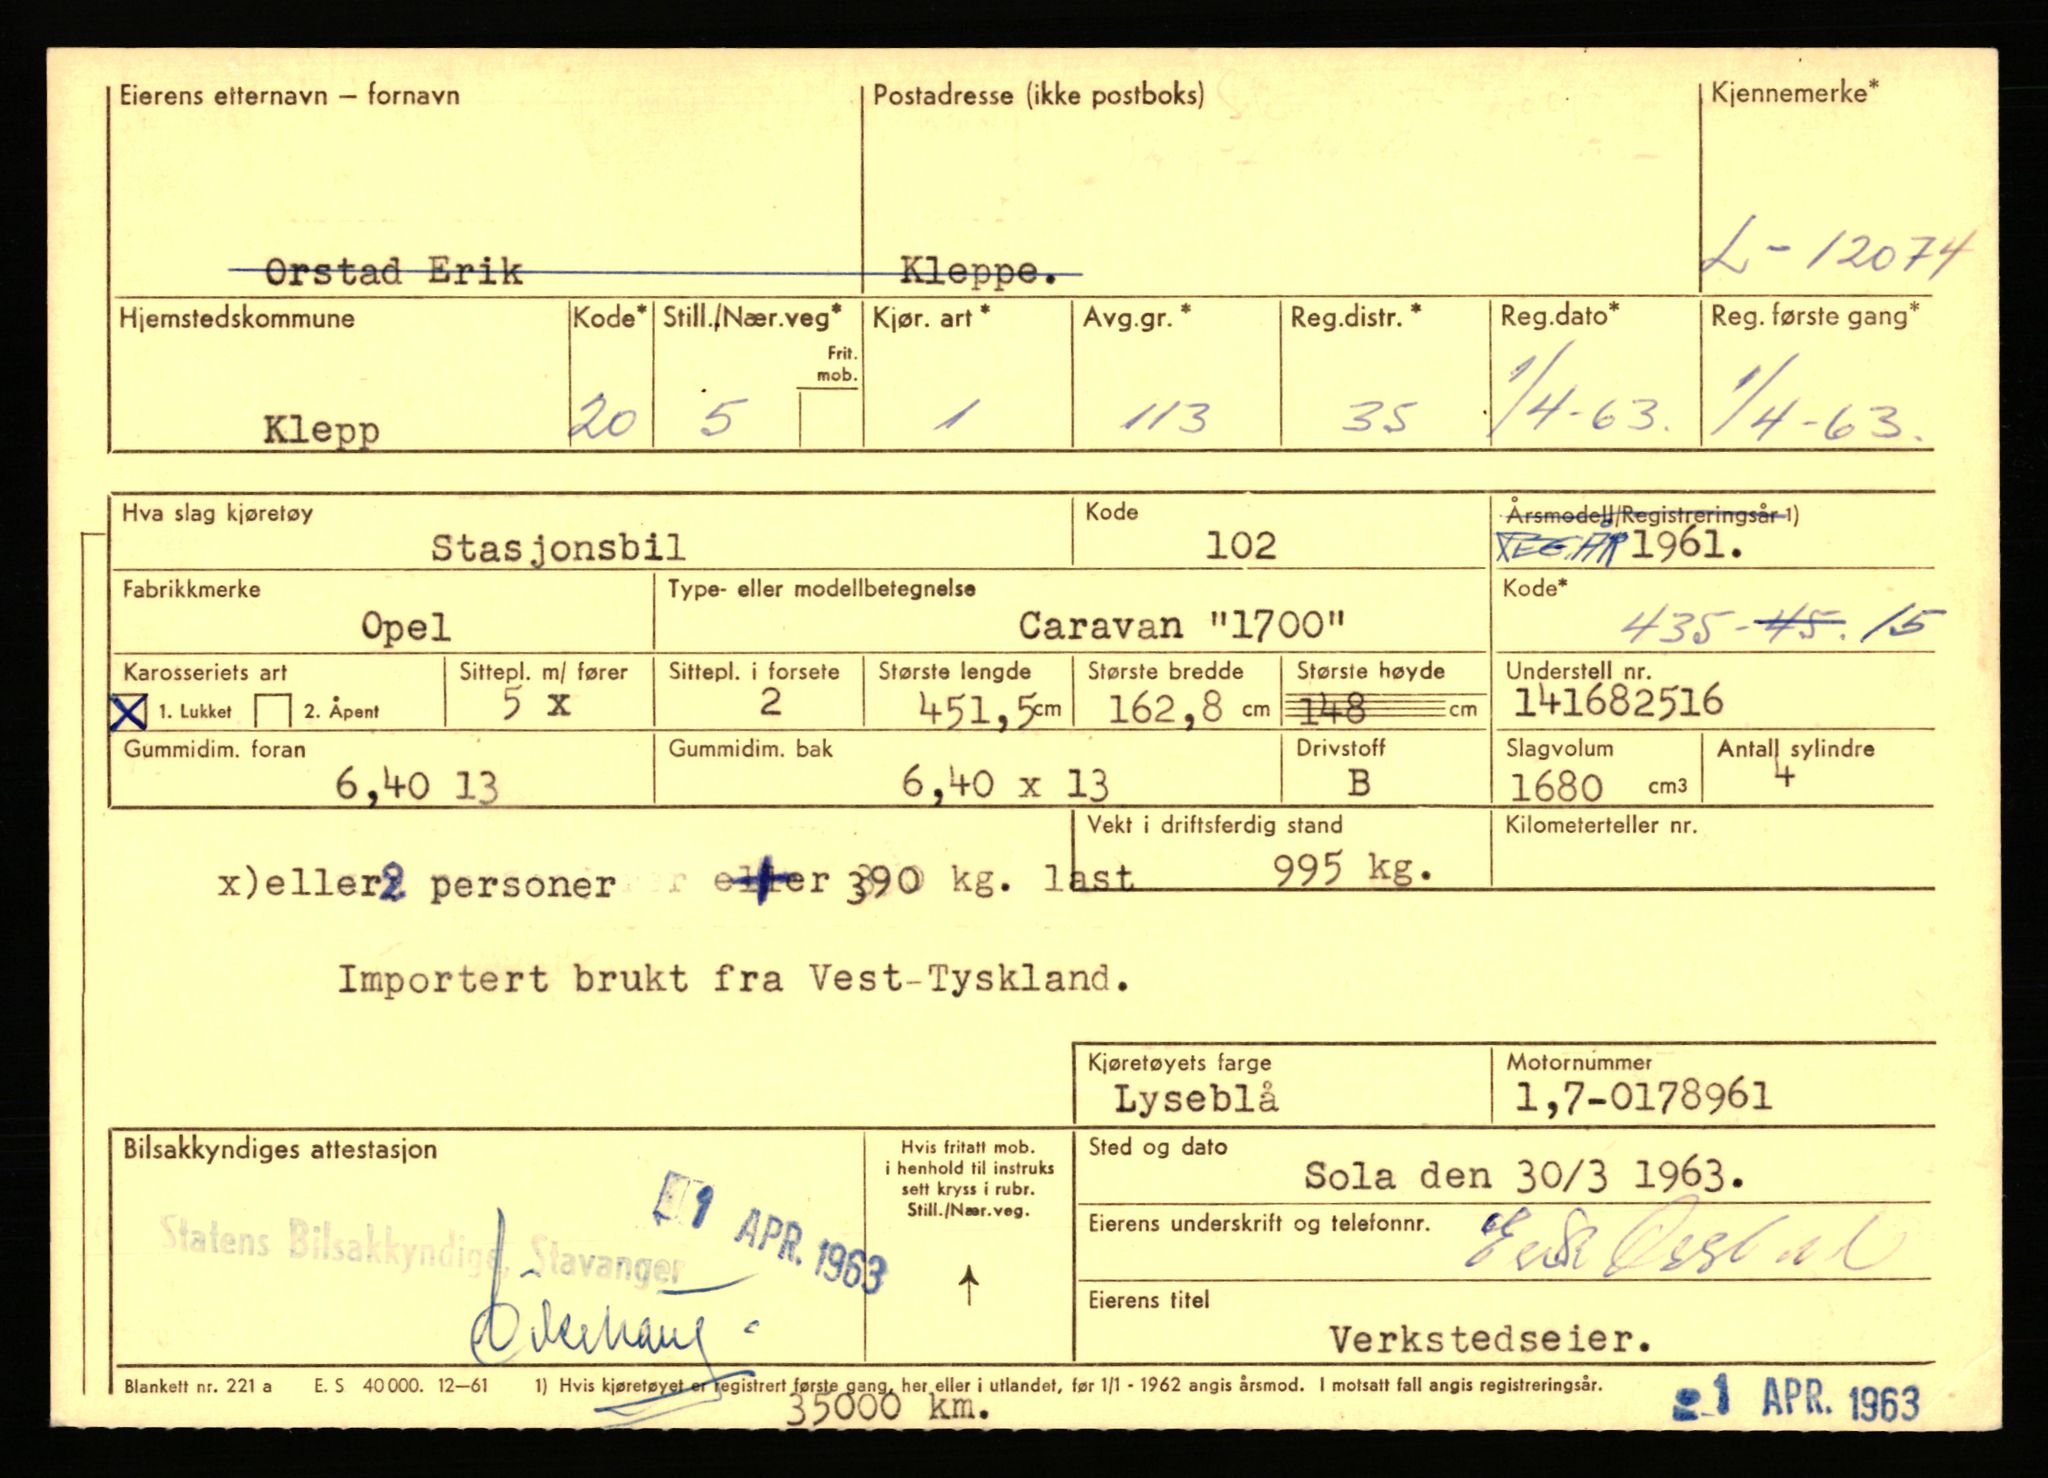 Eierens etternavn – fornavn Postadresse (ikke postboks) Kjennemerke*
Orstad Erik Kleppe. L - 12074
Hjemstedskommune Kode* Still./Nær.veg* Kjør. art* Avg.gr.* Reg.distr.* Reg.dato* Reg. første gang*
Frit.
mob.
Klepp 20 5 1 113 35 1/4-63. 1/4-63.
Hva slag kjøretøy Kode Årsmodell/Registreringsår 1)
Stasjonsbil 102 REG.ÅR 1961.
Fabrikkmerke Type- eller modellbetegnelse Kode*
Opel Caravan "1700" 435-45. 15
Karosseriets art Sittepl. m/ fører Sittepl. i forsete Største lengde Største bredde Største høyde Understell nr.
1. Lukket 2. Åpent 5 x 2 451,5 cm 162,8 cm 148 cm 141682516
Gummidim. foran Gummidim. bak Drivstoff Slagvolum Antall sylindre
6,40 13 6,40 x 13 B 1680 cm3 4
Vekt i driftsferdig stand Kilometerteller nr.
x)eller 2 personer eller 390 kg. last 995 kg.
Importert brukt fra Vest-Tyskland.
Kjøretøyets farge Motornummer
Lyseblå 1,7-0178961
Bilsakkyndiges attestasjon Hvis fritatt mob. Sted og dato
i henhold til instruks
sett kryss i rubr.
Still./Nær.veg.
Sola den 30/3 1963.
1 APR. 1963
Eierens underskrift og telefonnr.
Statens Bilsakkyndige, Stavanger
Erik Orstad
Eierens titel
Verkstedseier.
Blankett nr. 221 a E. S 40 000. 12–61 1) Hvis kjøretøyet er registrert første gang, her eller i utlandet, før 1/1 - 1962 angis årsmod. I motsatt fall angis registreringsår.
35000 km.
1 APR. 1963